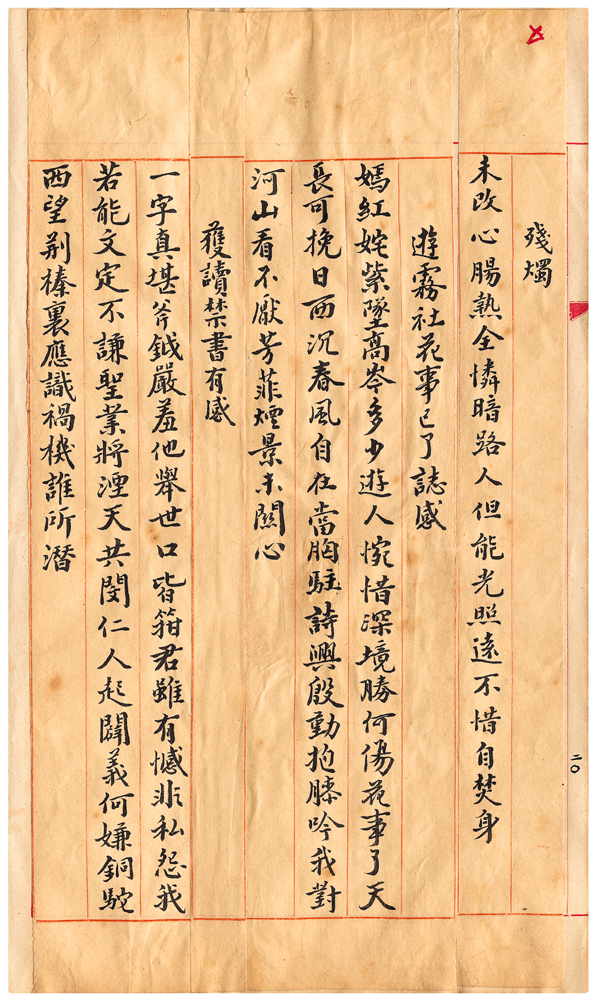 殘燭
未改心腸熱全憐暗路人但能光照遠不惜自焚身
遊霧社花事已了誌感
嫣紅姹紫墜高岑多少遊人惋惜深境勝何傷花事了天
長可挽日西沉春風自在當胸駐詩興殷勤抱膝吟我對
河山看不厭芳菲煙景未關心
獲讀禁書有感
一字真堪斧鉞嚴羞他舉世口皆箝君雖有憾非私怨我
若能文定不謙聖業將湮天共閔仁人起闢義何嫌銅駝
西望荆榛裏應識禍機誰所潛
二〇